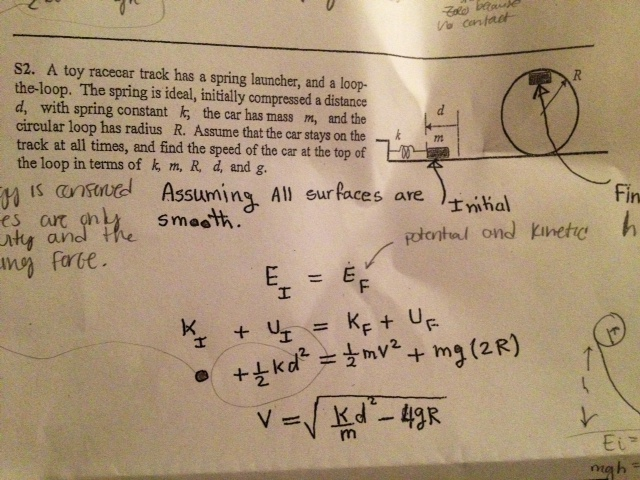 zero because
no contact
S2. A toy racecar track has a spring launcher, and a loop-
the-loop. The spring is ideal, initially compressed a distance
d, with spring constant k, the car has mass m, and the
circular loop has radius R. Assume that the car stays on the
track at all times, and find the speed of the car at the top of
the loop in terms of k, m, R, d, and g.
k
d
m
R
is conserved
es are only
and the
ing force.
Assuming All surfaces are
smooth.
Initial
potential and kinetic
Fin
h
E_I = E_F
K_I + U_I = K_F + U_F
0 + ½kd² = ½mv² + mg(2R)
V = √(k/m d² - 4gR)
Ei =
mgh =